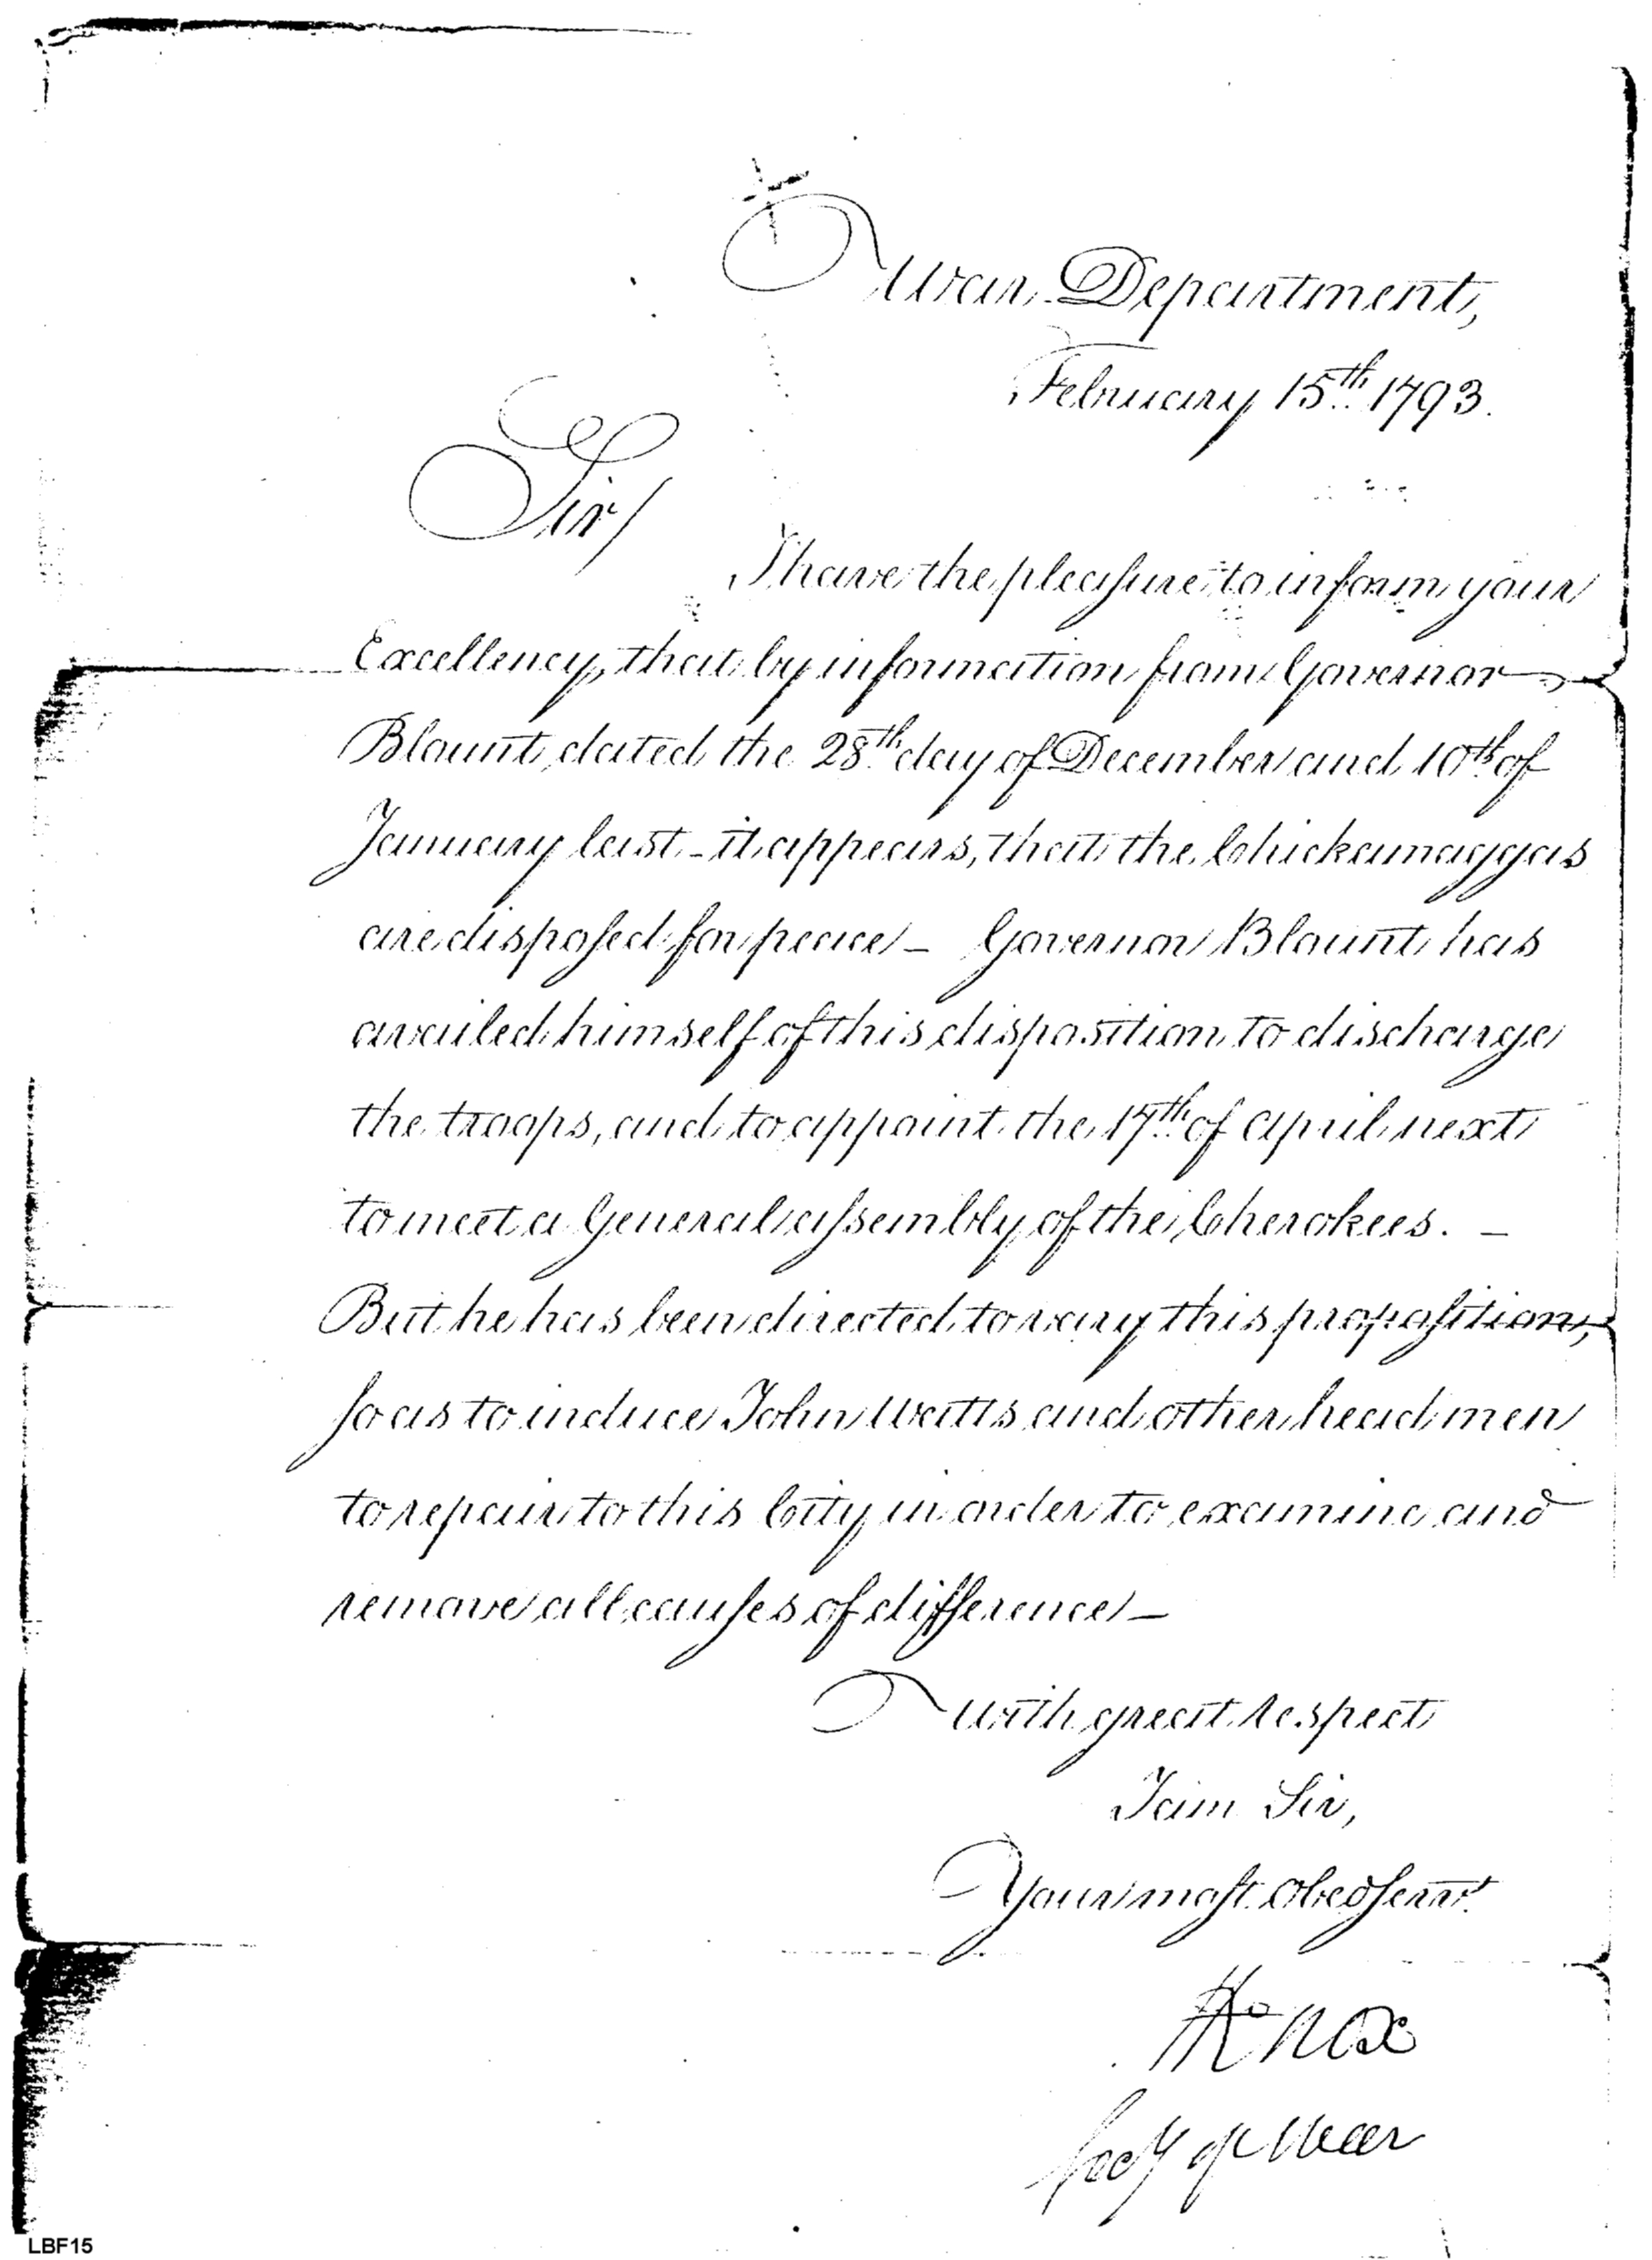 War Department,
February 15th 1793.
Sir/
I have the pleasure to inform your
Excellency, that by information from Governor
Blount, dated the 28th day of December and 10th of
January last - it appears, that the Chickamaggas
are disposed for peace - Governor Blount has
availed himself of this disposition to discharge
the troops, and to appoint the 17th of April next
to meet a General assembly of the Cherokees. -
But he has been directed to vary this proposition,
so as to induce John Watts and other head men
to repair to this City in order to examine and
remove all causes of difference -
With great respect
I am Sir,
Your most Obed Servt.
HKnox
Secy of War
LBF15